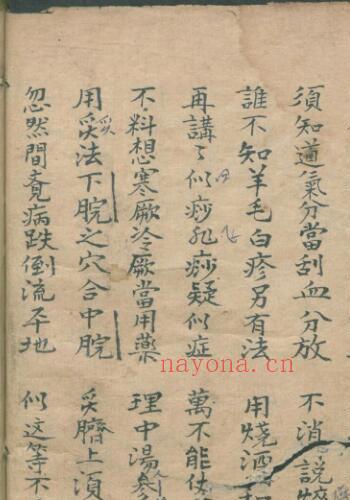 須知道氣分當刮血分放 不消說
誰不知羊毛白疹另有法 用燒酒
再講了似痧非痧疑似症 萬不能
不料想寒厥冷厥當用藥 理中湯
用灸法下脘之穴合中脘 灸臍上須
忽然間病跌倒流平地 似这等不
nayona.cn